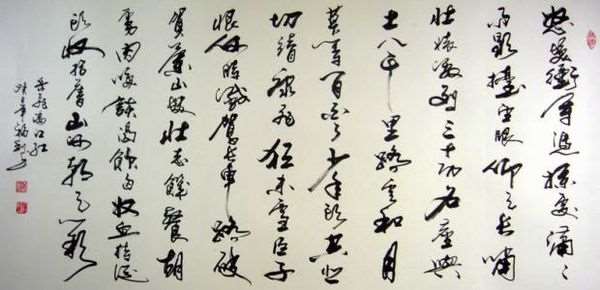 怒髮衝冠憑欄處瀟々
雨歇擡望眼仰天長嘯
壯懷激烈三十功名塵與
土八千里路雲和月
莫等閒白了少年頭空悲
切靖康耻猶未雪臣子
恨何時滅駕長車踏破
賀蘭山缺壯志飢餐胡
虜肉笑談渴飲匈奴血待從
頭收拾舊山河朝天闕
岳飛滿江紅